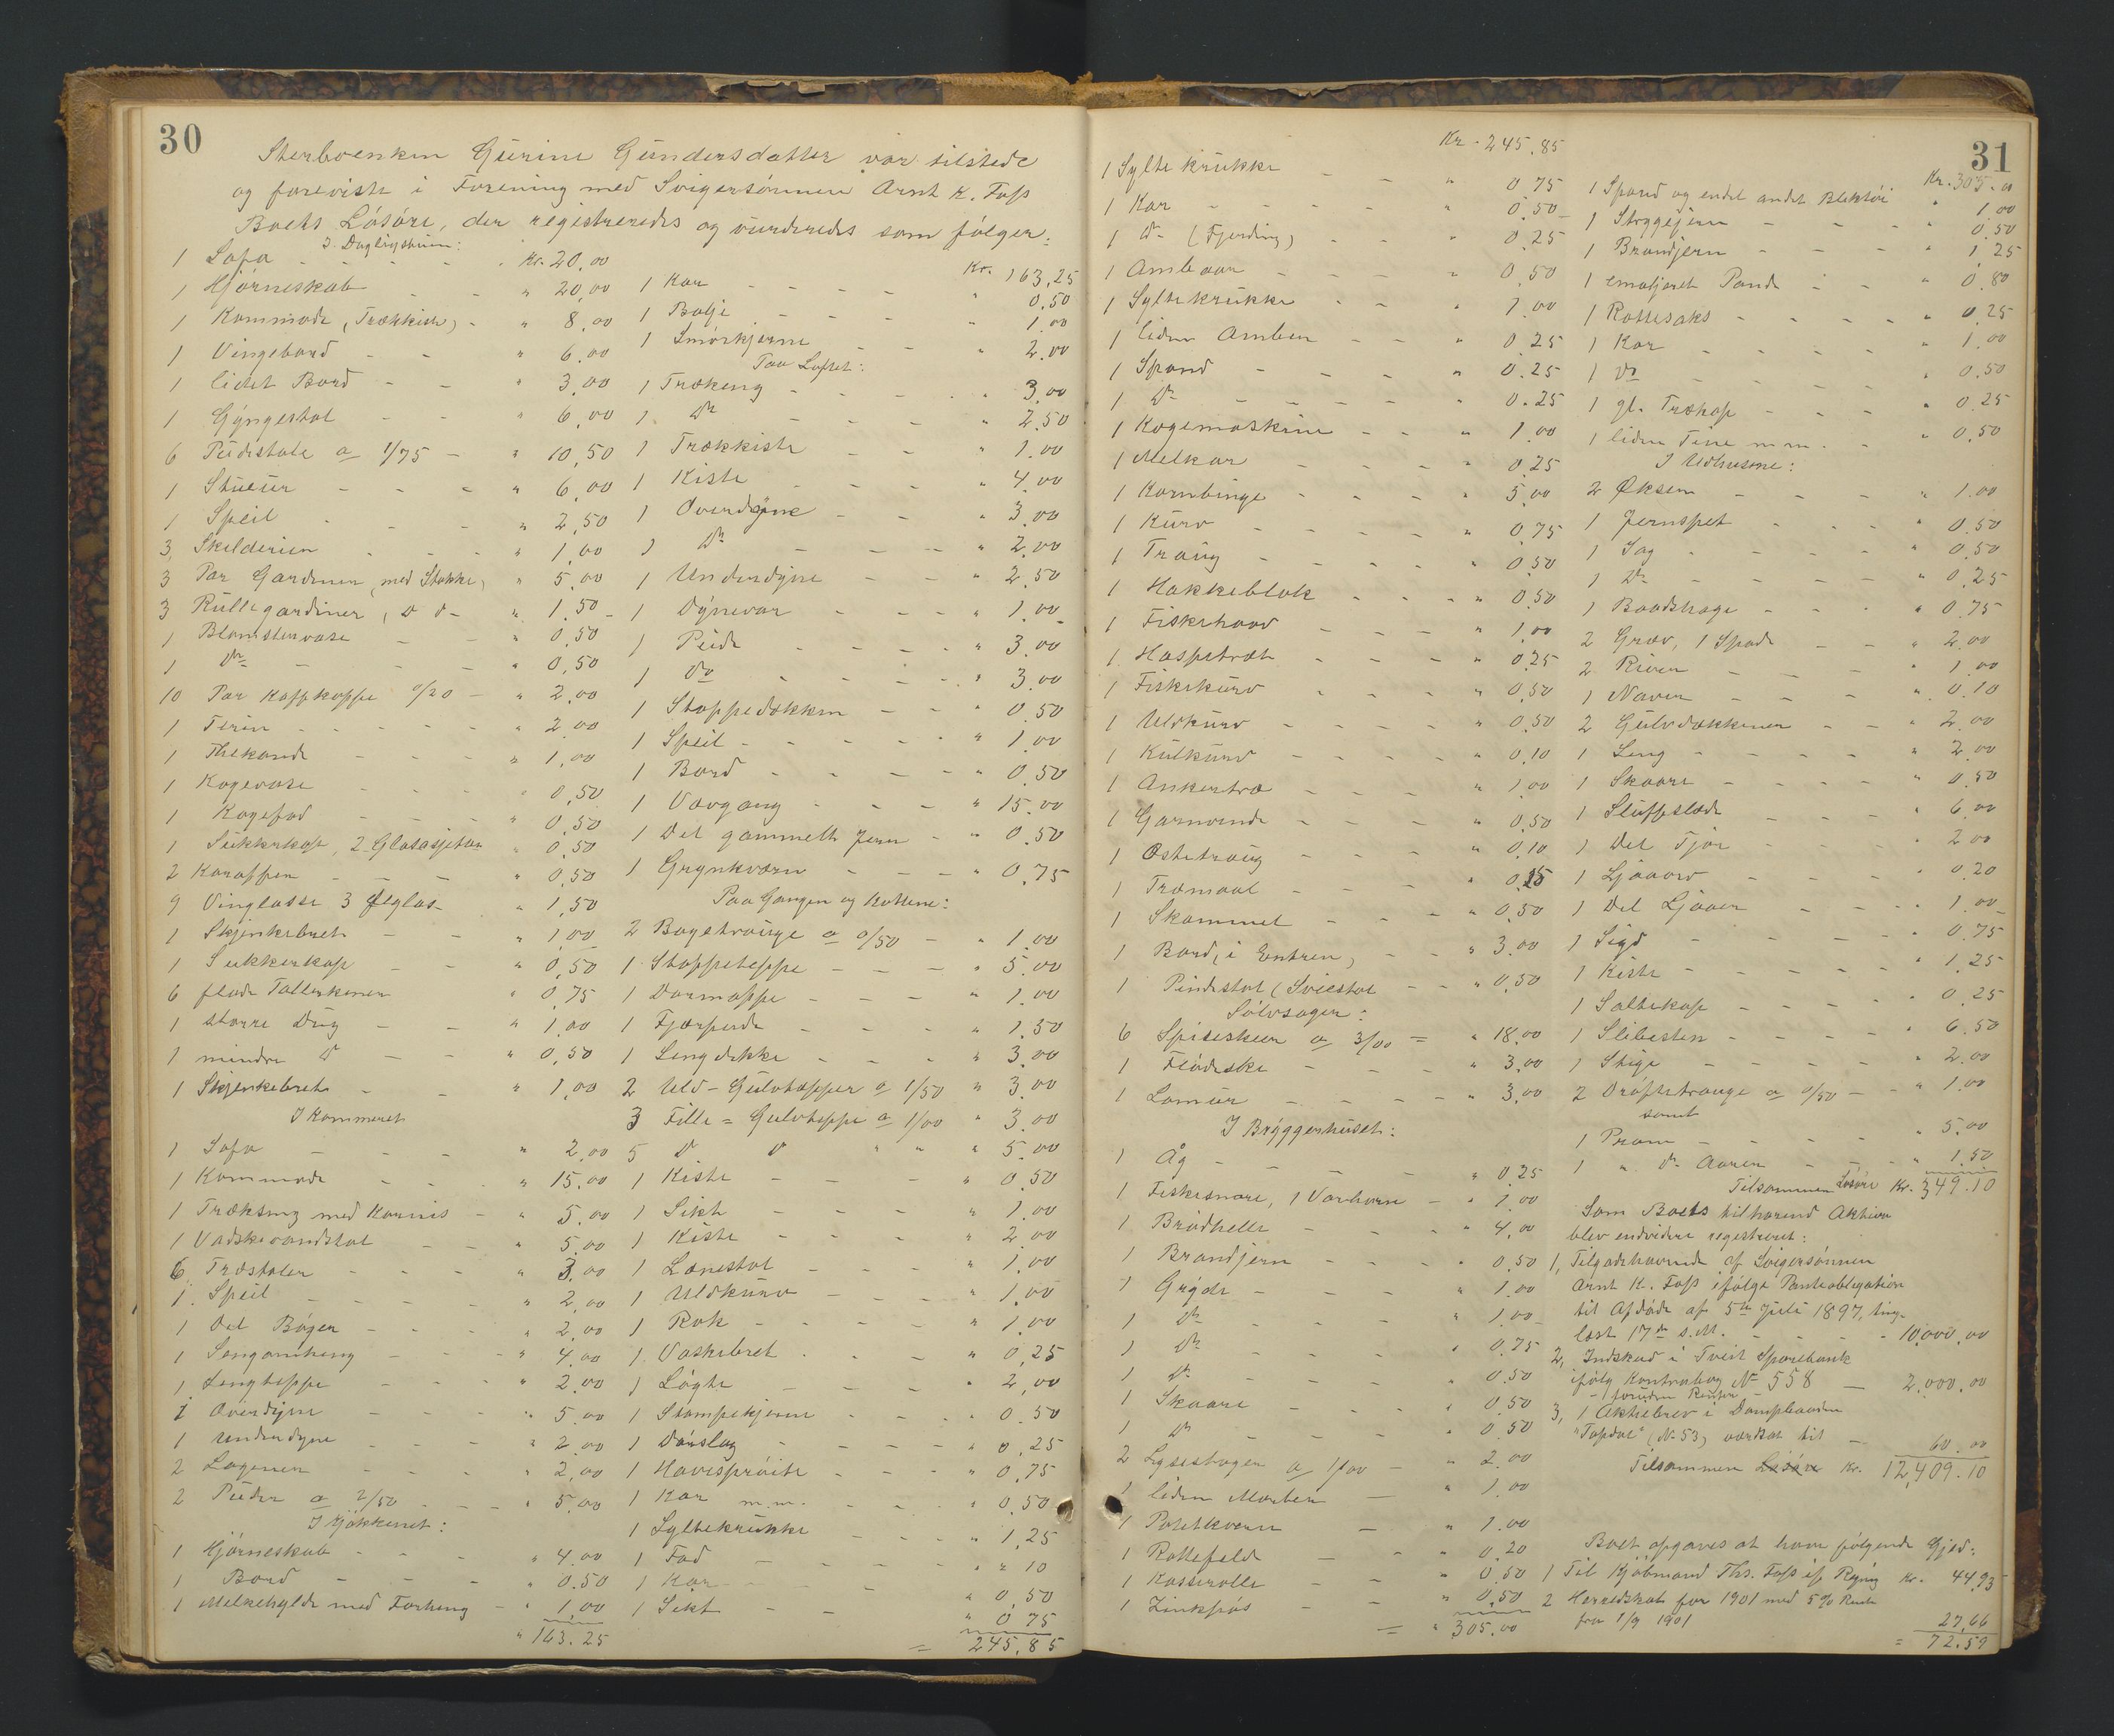 30
Sterboenken Gurine Gundersdatter var tilstede
og foreviste i Forening med Svigersønnen Arnt K. Foss
Boets Løsøre, der registreredes og vurderedes som følger:
I Dagligstuen:
1 Sofa - - - - Kr. 20,00
1 Hjørneskab - - " 20,00
1 Kommode (Trækkiste) - " 8,00
1 Vingebord - - " 6,00
1 lidet Bord - - " 3,00
1 Gyngestol - - " 6,00
6 Pudestole a 1/75 - " 10,50
1 Stueur - - - " 6,00
1 Speil - - - " 2,50
3 Skilderier - - - " 1,00
3 Par Gardiner, med Stokke, " 5,00
3 Rullegardiner, d d- " 1,50
1 Blomstervase - - " 0,50
1 Do - - - " 0,50
10 Par Kaffekoppe 0/20 - " 2,00
1 Terin - - - - " 2,00
1 Thekande - - - " 1,00
1 Kagevase - - - " 0,50
1 Kagefad - - - " 0,50
1 Sukkerkop, 2 Glasasjetter " 0,50
2 Karafler - - - " 0,50
9 Vinglasse 3 Ølglas - " 1,50
1 Skjenkebret - - " 1,00
1 Sukkerkop - - " 0,50
6 flade Tallerkener " 0,75
1 større Dug - - " 1,00
1 mindre D - - " 0,50
1 Skjenkebret - - " 1,00
I Kammeret
1 Sofa - - - " 2,00
1 Kommode - - - " 15,00
1 Træksæng med Karnis - " 5,00
1 Vadskevandstol - - " 5,00
6 Træstoler - - - " 3,00
1 Speil - - - - " 2,00
1 Del Bøger - - - " 2,00
1 Sengomheng - - - " 4,00
1 Sengteppe - - - " 2,00
1 Overdyne - - - " 5,00
1 Underdyne - - - " 2,00
2 Lagener - - - " 2,00
2 Puder a 2/50 - - - " 5,00
I Kjøkkenet:
1 Hjørneskab - - - " 4,00
1 Bord - - - " 0.50
1 Melkehylde med Forheng - " 1,00
" 163.25
Kr. 163,25
1 Kar - - - - " 0,50
1 Balje - - - " 1,00
1 Smørkjerne - - " 2,00
Paa Loftet:
1 Træseng - - - - " 3,00
1 Do - - - " 2,50
1 Trækkiste - - " 1,00
1 Kiste - - - " 4,00
1 Overdyne - - " 3,00
1 Do - - - " 2,00
1 Underdyne - - - " 2,50
1 Dynevar - - - " 1,00
1 Pude - - - - " 3,00
1 Do - - - - " 3,00
1 Stoppedækken - - " 0,50
1 Speil - - - - " 1,00
1 Bord - - - - " 0,50
1 Vævgang - - - " 15,00
1 Del gammelt Jern - " 0,50
1 Grynkværn - - - " 0,75
Paa Gangen og Kottene:
2 Bagetrauge a 0/50 - " 1,00
1 Stoppeteppe - - - " 5,00
1 Dørmappe - - - " 1,00
1 Fjærpude - - - " 1,50
1 Sengdekke - - - " 3,00
2 Uld-Gulvtæpper a 1/50 " 3,00
3 Fille=Gulvteppe a 1/00 " 3,00
5 D D " " " 5,00
1 Kiste - - - " 0,50
1 Sikt - - - " 1,00
1 Kiste - - - " 2,00
1 Lænestol - - - " 1,00
1 Uldkurv - - - " 1,00
1 Rok - - - - " 1,00
1 Vaskebret - - - " 0,25
1 Løgte - - - " 2,00
1 Stampekjerne - - - " 0.50
1 Dørslag - - - - " 0,25
1 Havesprøite - - - " 0,75
1 Kar m.m. - - - " 0,50
1 Syltekrukke - - - " 1,25
1 Fad - - - - " " 10
1 Kar - - - " 0,50
1 Sikt - - " 0 75
= 245,85
31
Kr. 245.85
1 Syltekrukke - - " 0,75
1 Kar - - - - " 0,50
1 Do (Fjerding) - - " 0.25
1 Ambaar - - - - " 0,50
1 Syltekrukke - - " 1.00
1 liden Amber - - " 0.25
1 Spand - - - - " 0.25
1 Do - - - - " 0.25
1 Kogemaskine - - " 1,00
1 Melkar - - - " 0,25
1 Kornbinge - - - " 5,00
1 Kurv - - - - " 0,75
1 Traug - - - - " 0,50
1 Hakkeblok - - - " 0,50
1 Fiskehaav - - - " 1,00
1 Haspetræ - - - " 0,25
1 Fiskekurv - - - " 0,50
1 Uldkurv - - - - " 0,50
1 Kulkurv - - - - " 0,10
1 Ankertræ - - - " 1,00
1 Garnvinde - - - " 0,50
1 Ostetraug - - - " 0,10
1 Træmaal - - - - " 0,15
1 Skammel - - - " 0,50
1 Bord, i Entreen, - - " 3.00
1 Pindestol (Sviestol - - " 0,50
Sølvsager:
6 Spiseskeer a 3/00 = " 18.00
1 Flødeske - - - - " 3,00
1 Lomur - - - - " 3,00
I Bryggerhuset:
1 Åg - - - - " 0,25
1 Fiskesnøre, 1 Varhorn - " 1.00
1 Brødhelle - - - - " 4,00
1 Brandjern - - - - " 0.50
1 Gryde - - - - " 1.00
1 Do - - - - " 1.00
1 Do - - - - " 0.75
1 Do - - - - " 0.50
1 Skaare - - - - " 0.50
1 Do - - - - " 0.50
2 Lysestager a 1/00 - " 2.00
1 liden Morter - " 1,00
1 Potetkværn - " 1.00
1 Rottefelde - - " 0.20
1 Kasserolle - - " 0.50
1 Zinkpøs - - " 0.50
= " 305.00
Kr. 305.00
1 Spand og endel andet Bliktøi " 1.00
1 Strygejern - - - " 0.50
1 Brandjern - - - " 1,25
1 emaljeret Pande - - " 0.80
1 Rottesaks - - - - " 0.25
1 Kar - - - - " 1.00
1 Do - - - - " 0.50
1 gl. Trækop - - - " 0.25
1 liden Tine m.m. - - " 0,50
I Udhusene:
2 Øksen - - - " 1.00
1 Jernspet - - - " 0.50
1 Sag - - - - " 0,50
1 Do - - - - " 0,25
1 Baadshage - - - " 0,75
2 Græv, 1 Spade - - " 2.00
2 River - - - - " 1.00
1 Naver - - - - " 0.10
2 Gulvdækkener - - " 2.00
1 Seng - - - - " 2.00
1 Skaare - - - - " 0.50
1 Sluffslæde - - - " 6.00
1 Del Tjør - - - - " 2.00
1 Ljaaorv - - - - " 0.20
1 Del Ljaaer - - - " 1.00
1 Sigd - - - - " 0.75
1 Kiste - - - - " 1.25
1 Saltekop - - - - " 0.25
1 Slibesten - - - - " 6.50
1 Stige - - - - " 2.00
2 Drøftetrauge a 0/50 - - " 1.00
samt
1 Pram - - - - " 5.00
1 " do Aarer - - - " 1.50
Tilsammen Løsøre Kr. 349.10
Som Boets tilhørend Aktiva
blev endvidere registreret:
1, Tilgodehavende af Svigersønnen
Arnt K. Foss ifølge Panteobligation
til Afdøde af 5te Juli 1897, ting-
læst 17de s.M. - - - " 10,000.00
2, Indskud i Tveit Sparebank
ifølg Kontrabog No 558 — 2.000.00
- foruden Renter -
3, 1 Aktiebrev i Dampbaaden
"Topdal" (No 53) værdsat til — 60.00
Tilsammen Løsøre Kr. 12,409.10
Boet opgaves at have følgende Gjæld:
1 Til Kjøbmand Ths. Foss if. Regning Kr. 44,93
2 Herredskat for 1901 med 5% Rente
fra 1/9 1901 27,66
= 72.59